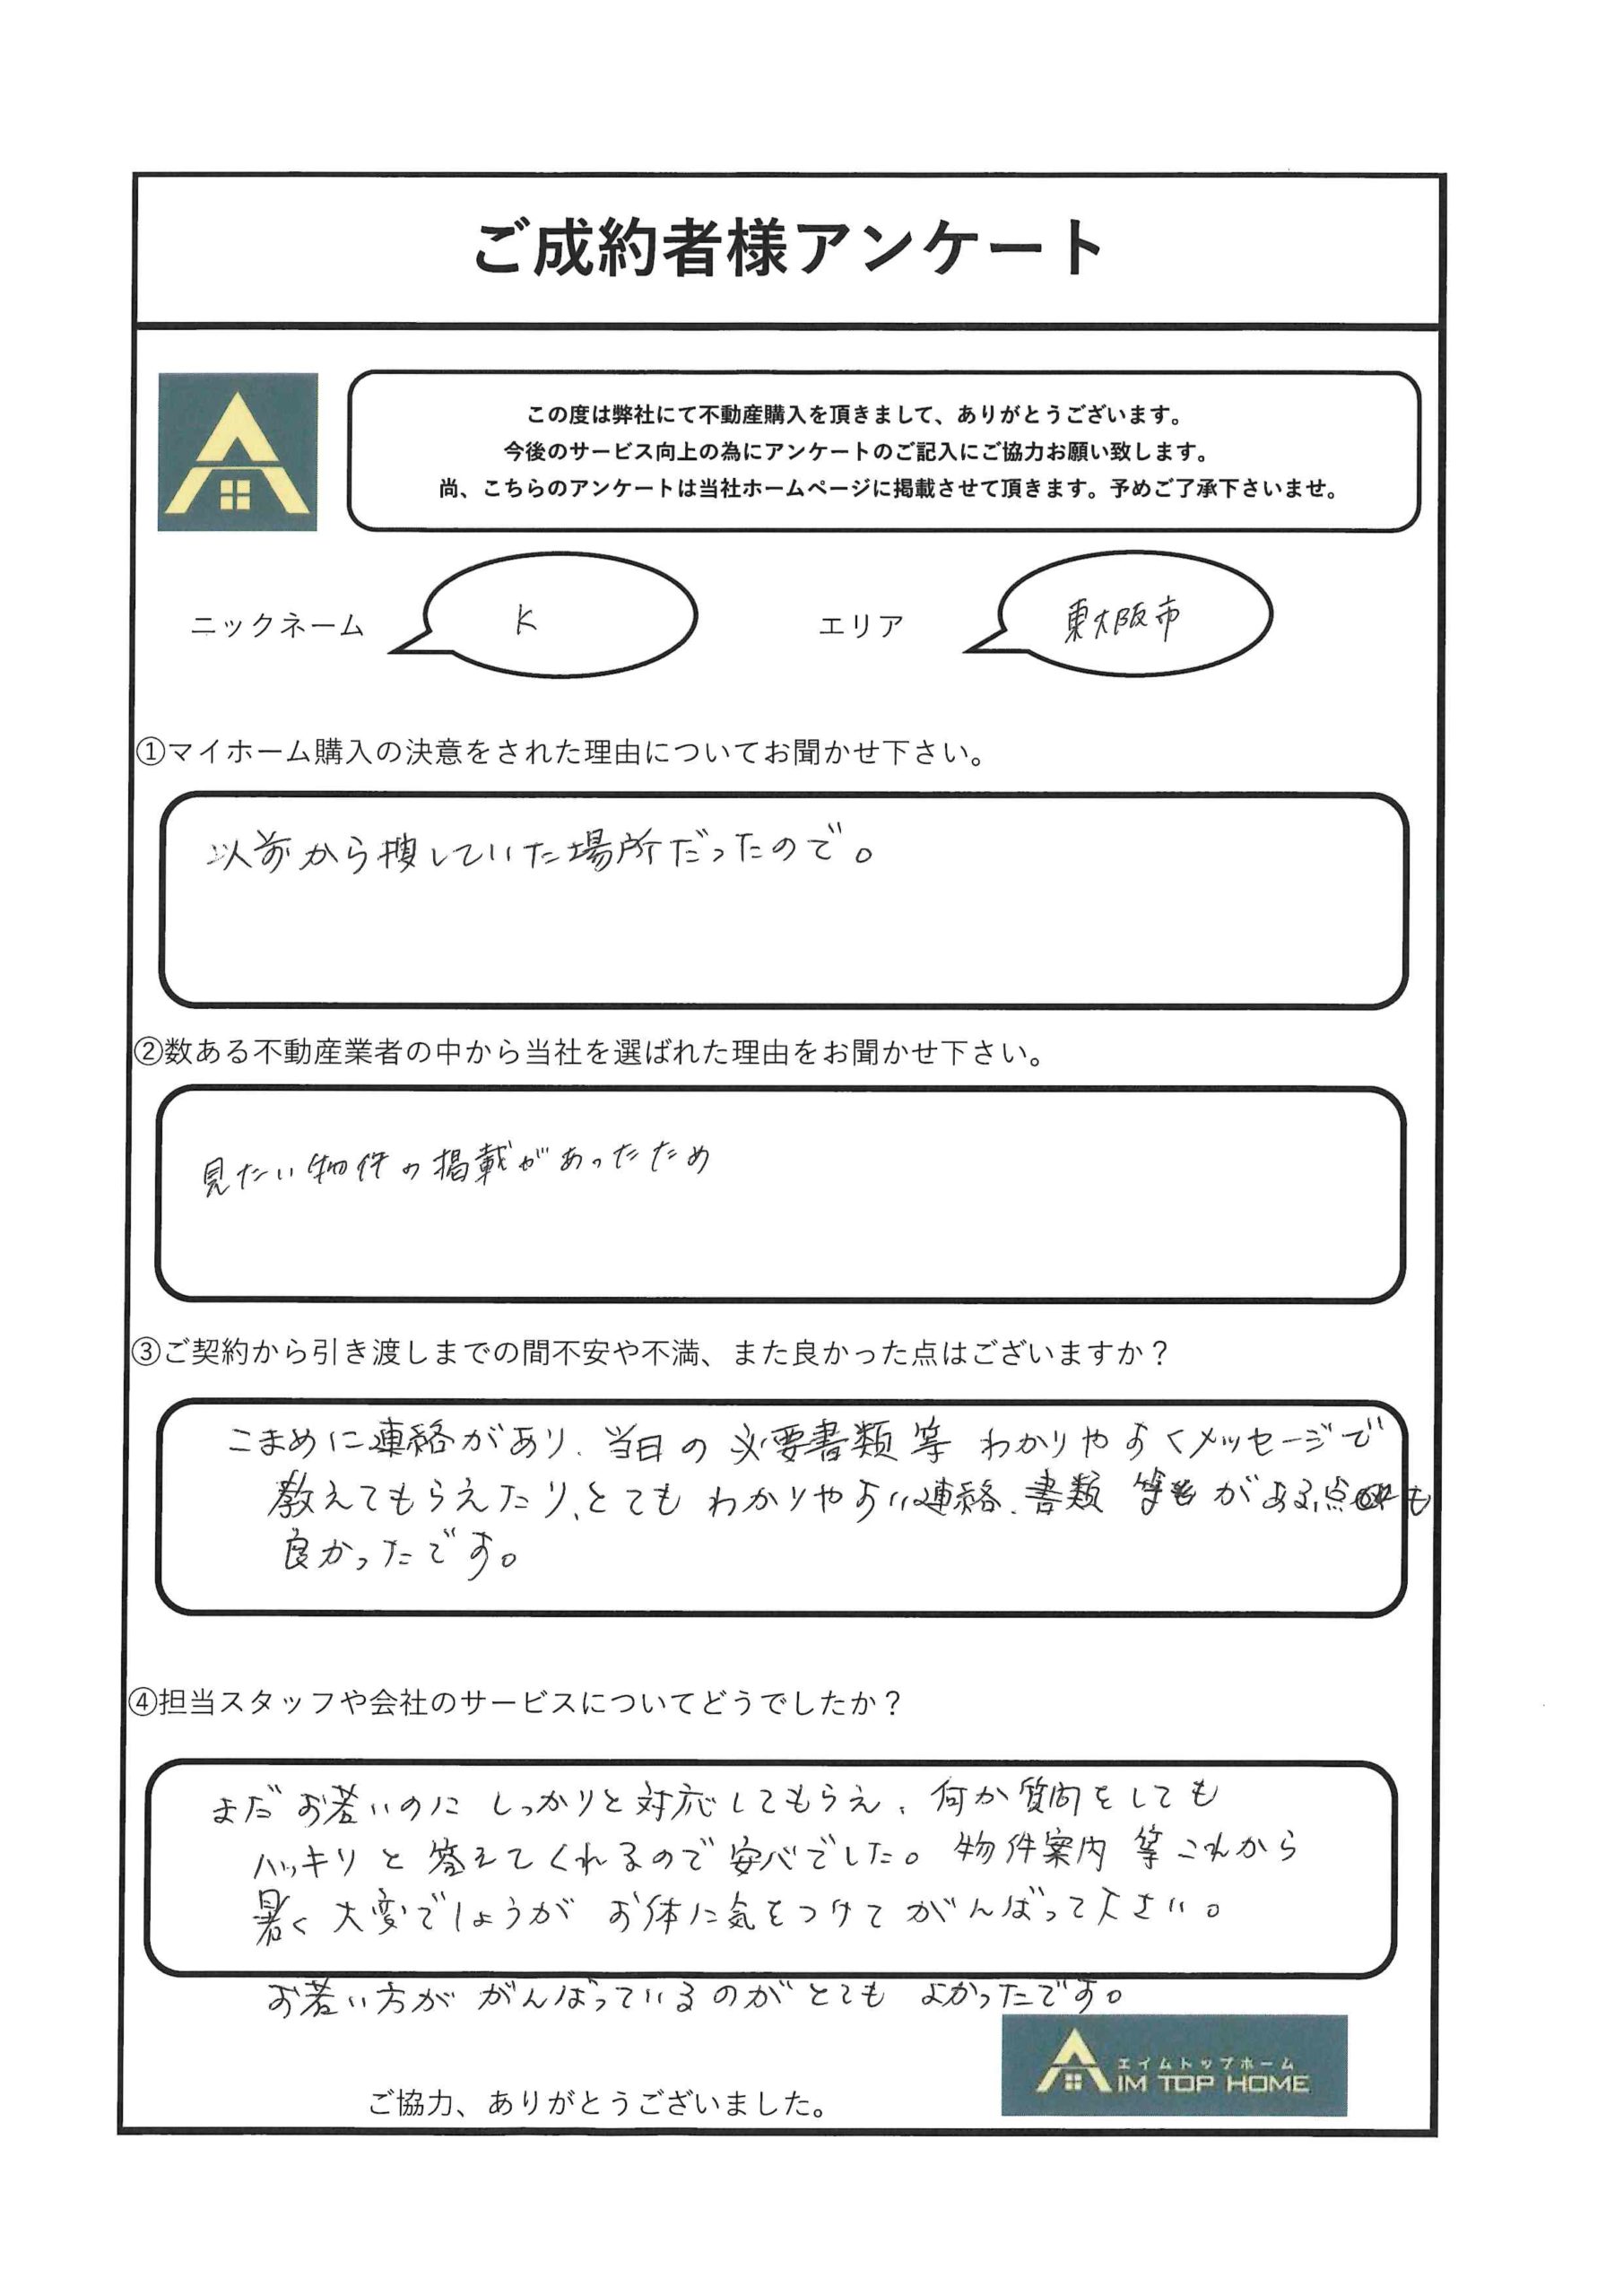 ご成約者様アンケート
この度は弊社にて不動産購入を頂きまして、ありがとうございます。
今後のサービス向上の為にアンケートのご記入にご協力お願い致します。
尚、こちらのアンケートは当社ホームページに掲載させて頂きます。予めご了承下さいませ。
ニックネーム K エリア 東大阪市
①マイホーム購入の決意をされた理由についてお聞かせ下さい。
以前から捜していた場所だったので。
②数ある不動産業者の中から当社を選ばれた理由をお聞かせ下さい。
見たい物件の掲載があったため
③ご契約から引き渡しまでの間不安や不満、また良かった点はございますか？
こまめに連絡があり、当日の必要書類等 わかりやすくメッセージで
教えてもらえたり、とても わかりやすい連絡、書類 等 がある点も
良かったです。
④担当スタッフや会社のサービスについてどうでしたか？
まだお若いのに しっかりと対応してもらえ、何か質問をしても
ハッキリと 答えてくれるので安心でした。物件案内 等これから
暑く 大変でしょうが お体に気をつけてがんばって下さい。
お若い方が がんばっているのがとても よかったです。
エイムトップホーム
AIM TOP HOME
ご協力、ありがとうございました。